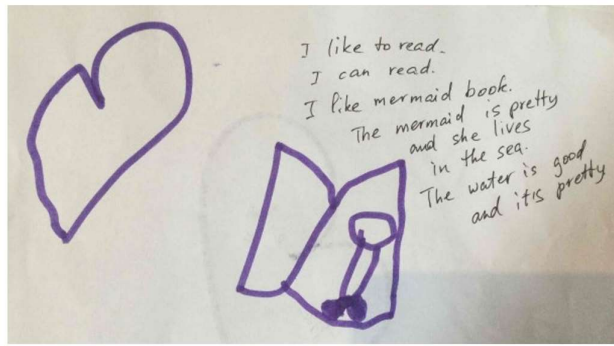 I like to read.
I can read.
I like mermaid book.
The mermaid is pretty
and she lives
in the sea.
The water is good
and itis pretty